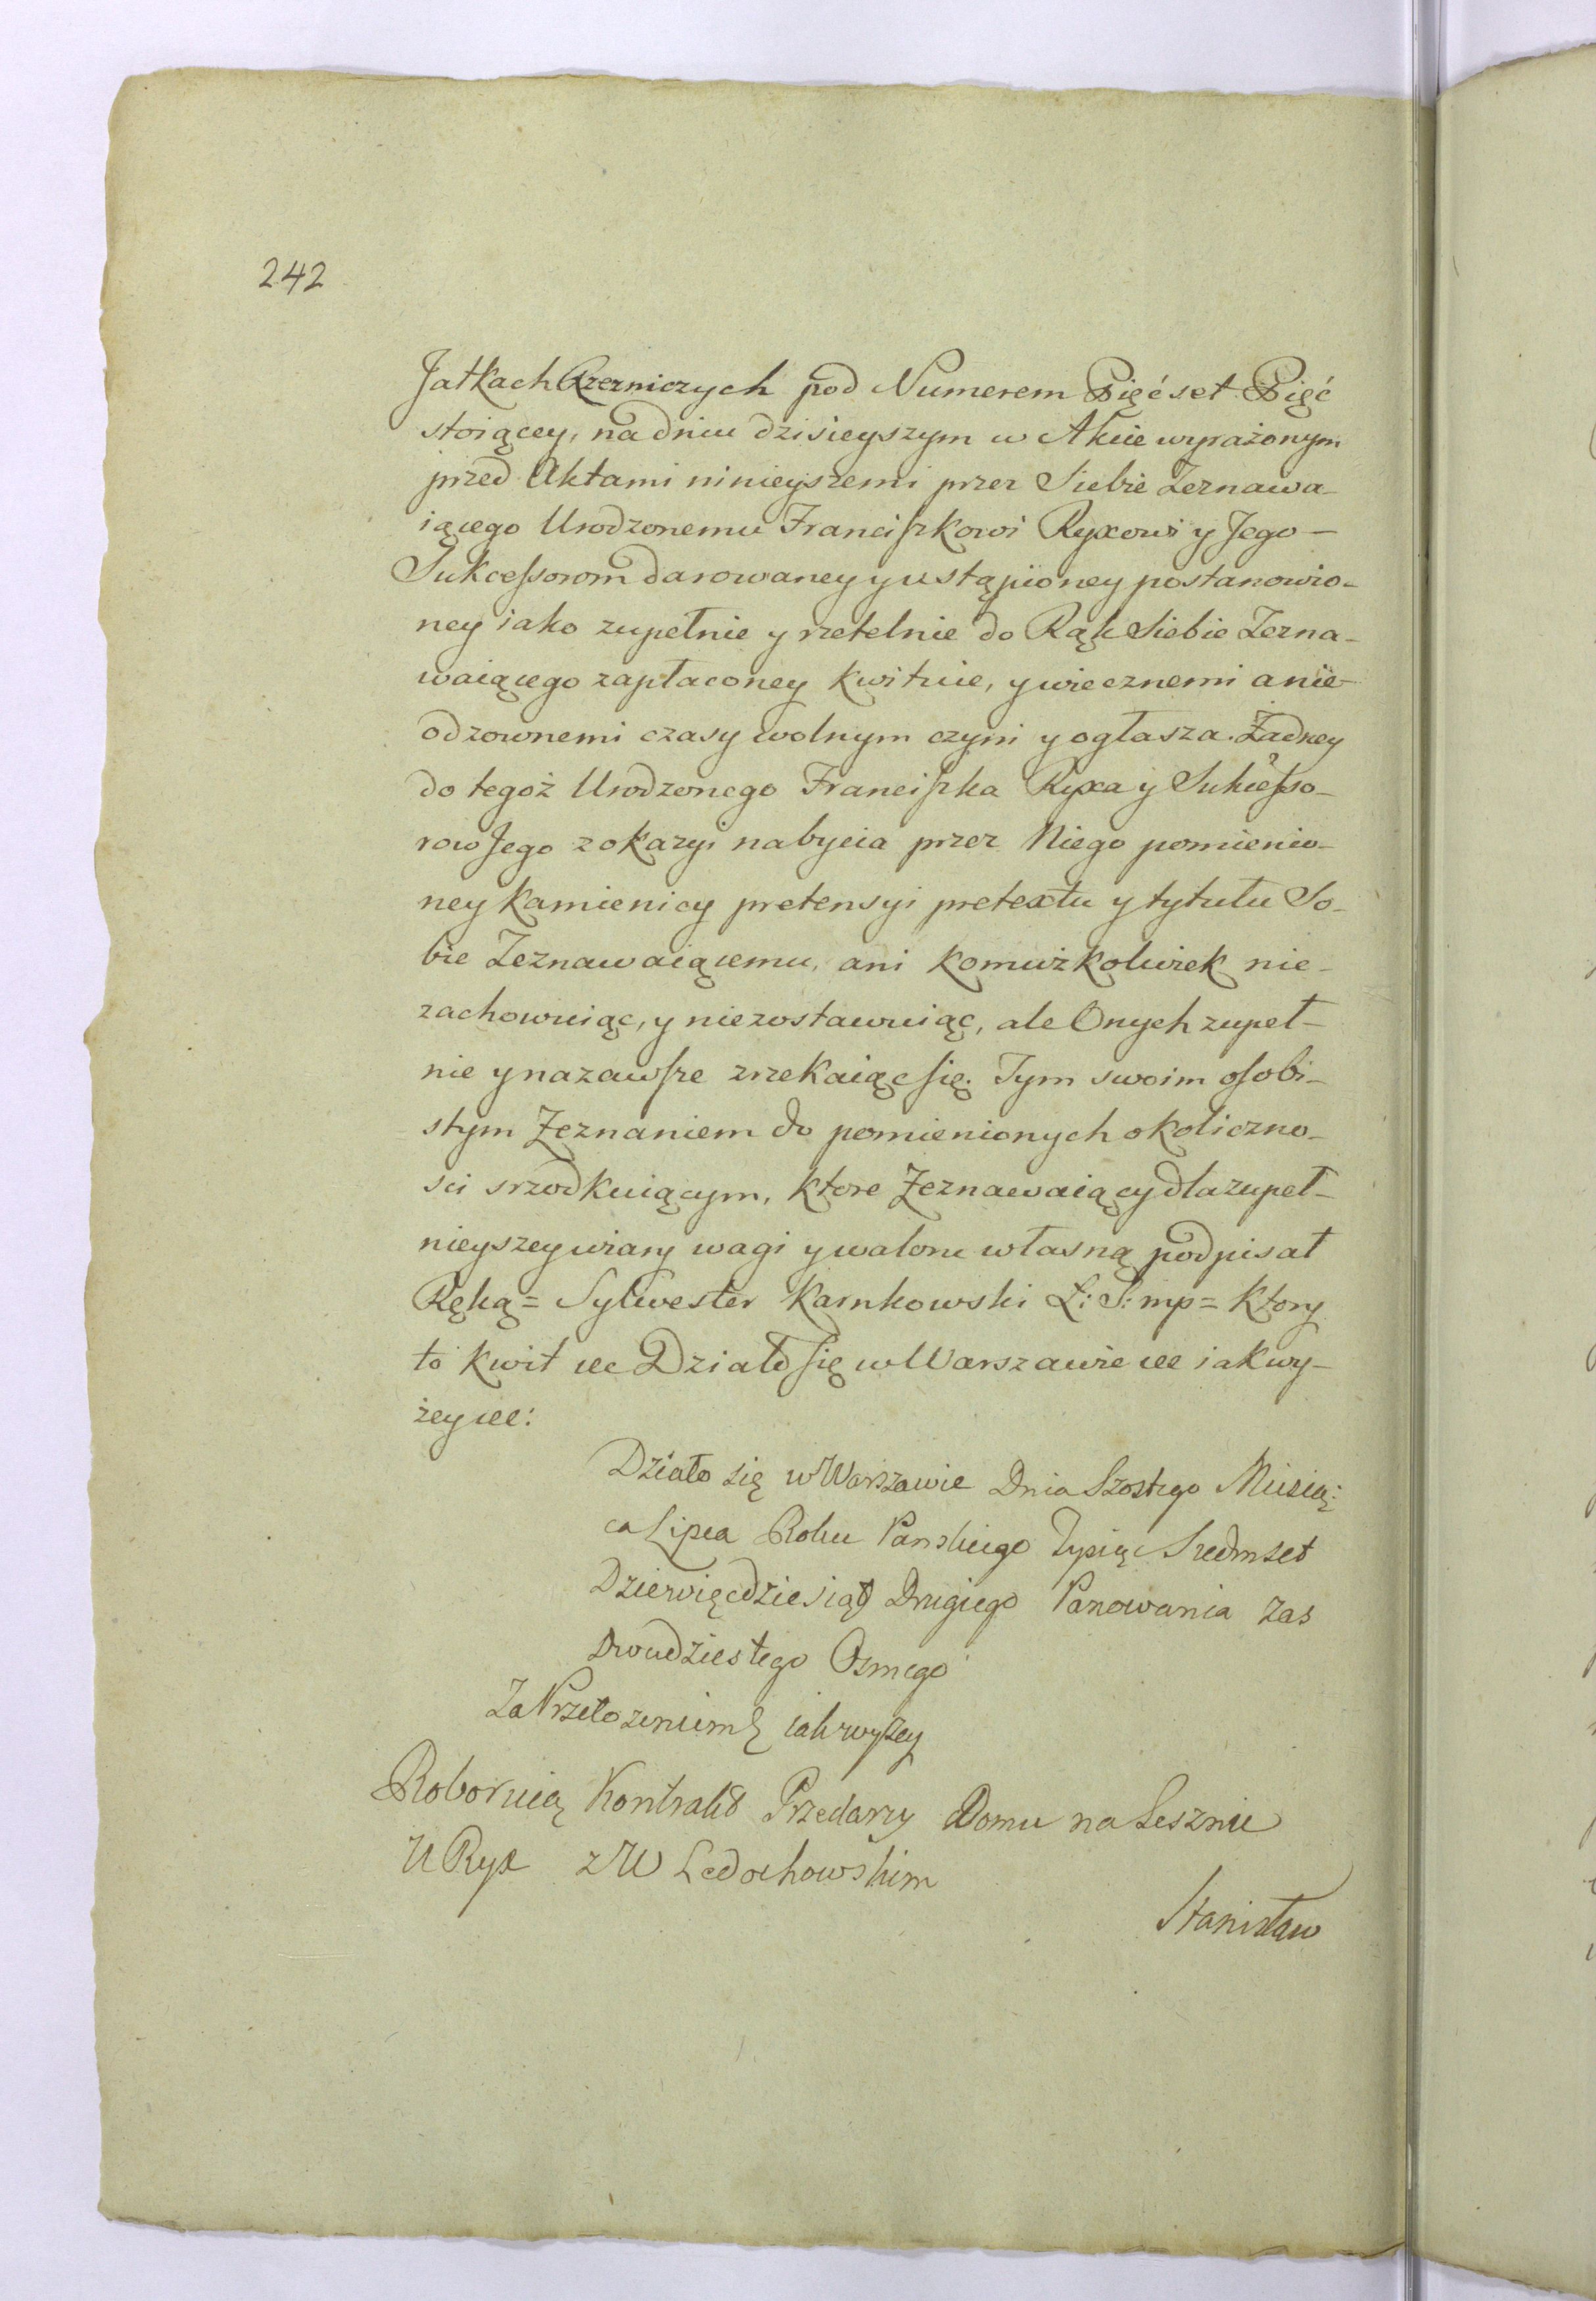 242
Jatkach Rzezniczych pod Numerem Pięćset Pięć
stoiącey, na dniu dzisieyszym w Akcie wyrażonym
przed Aktami ninieyszemi przez Siebie Zeznawa-
iącego Urodzonemu Franciszkowi Ryxowi y Jego -
Sukcessorom darowaney y ustąpioney postanowio-
ney iako zupełnie y rzetelnie do Rąk Siebie Zezna-
waiącego zapłaconey kwituie, y wiecznemi a nie-
odzownemi czasy wolnym czyni y ogłasza. Żadney
do tegoż Urodzonego Franciszka Ryxa y Sukcesso-
row Jego z okazyi nabycia przez Niego pomienio-
ney kamienicy pretensyi pretextu y tytułu So-
bie Zeznawaiącemu, ani komużkolwiek nie-
zachowuiąc, y niezostawuiąc, ale Onych zupeł-
nie y nazawsze zrzekaiąc się. Tym swoim osobi-
stym Zeznaniem do pomienionych okoliczno-
sci srzodkuiącym, ktore Zeznawaiący dla zupeł-
nieyszey wiary wagi y waloru własną podpisał
Ręką = Sylwester Karnkowski L: S: mp = ktory
to kwit etc Działo się w Warszawie etc iak wy-
żey etc:
Działo się w Warszawie Dnia Szostego Miesią:
ca Lipca Roku Panskiego Tysiąc Siedmset
Dziewięcdziesiąt Drugiego Panowania zas
Dwudziestego Osmego
Za Przełozeniem iak wyzey
Roboruią Kontrakt Przedarzy Domu na Lesznie
U Ryx z W Ledochowskim
Stanisław